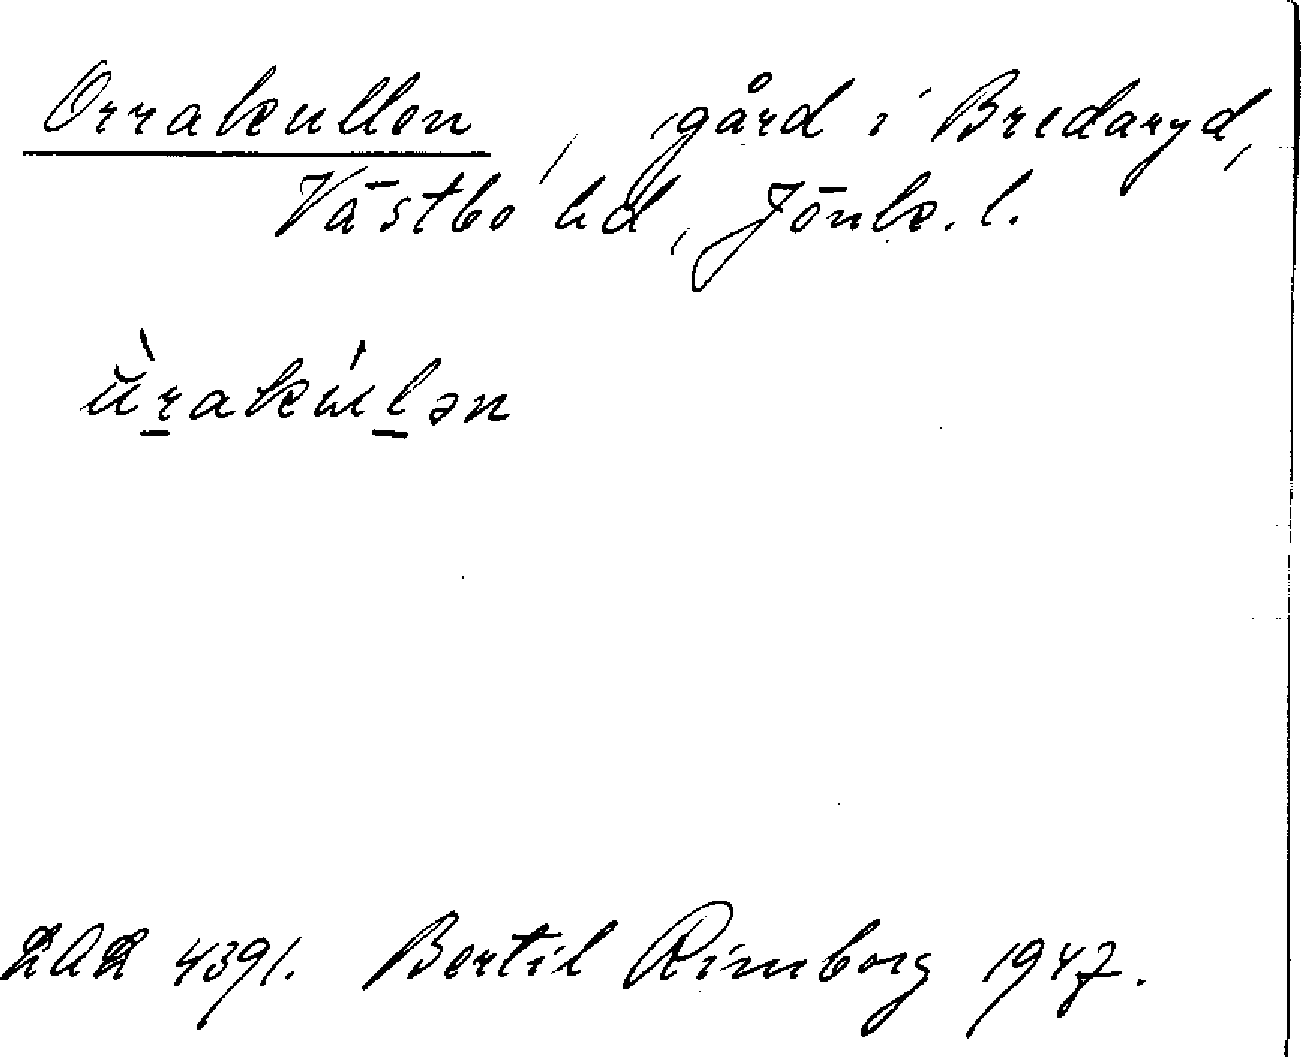 Orrakullen, gård i Bredaryd,
Västbo hd, Jönk. l.
ùrakúlən
DAL 4391. Bertil Rimborg 1947.